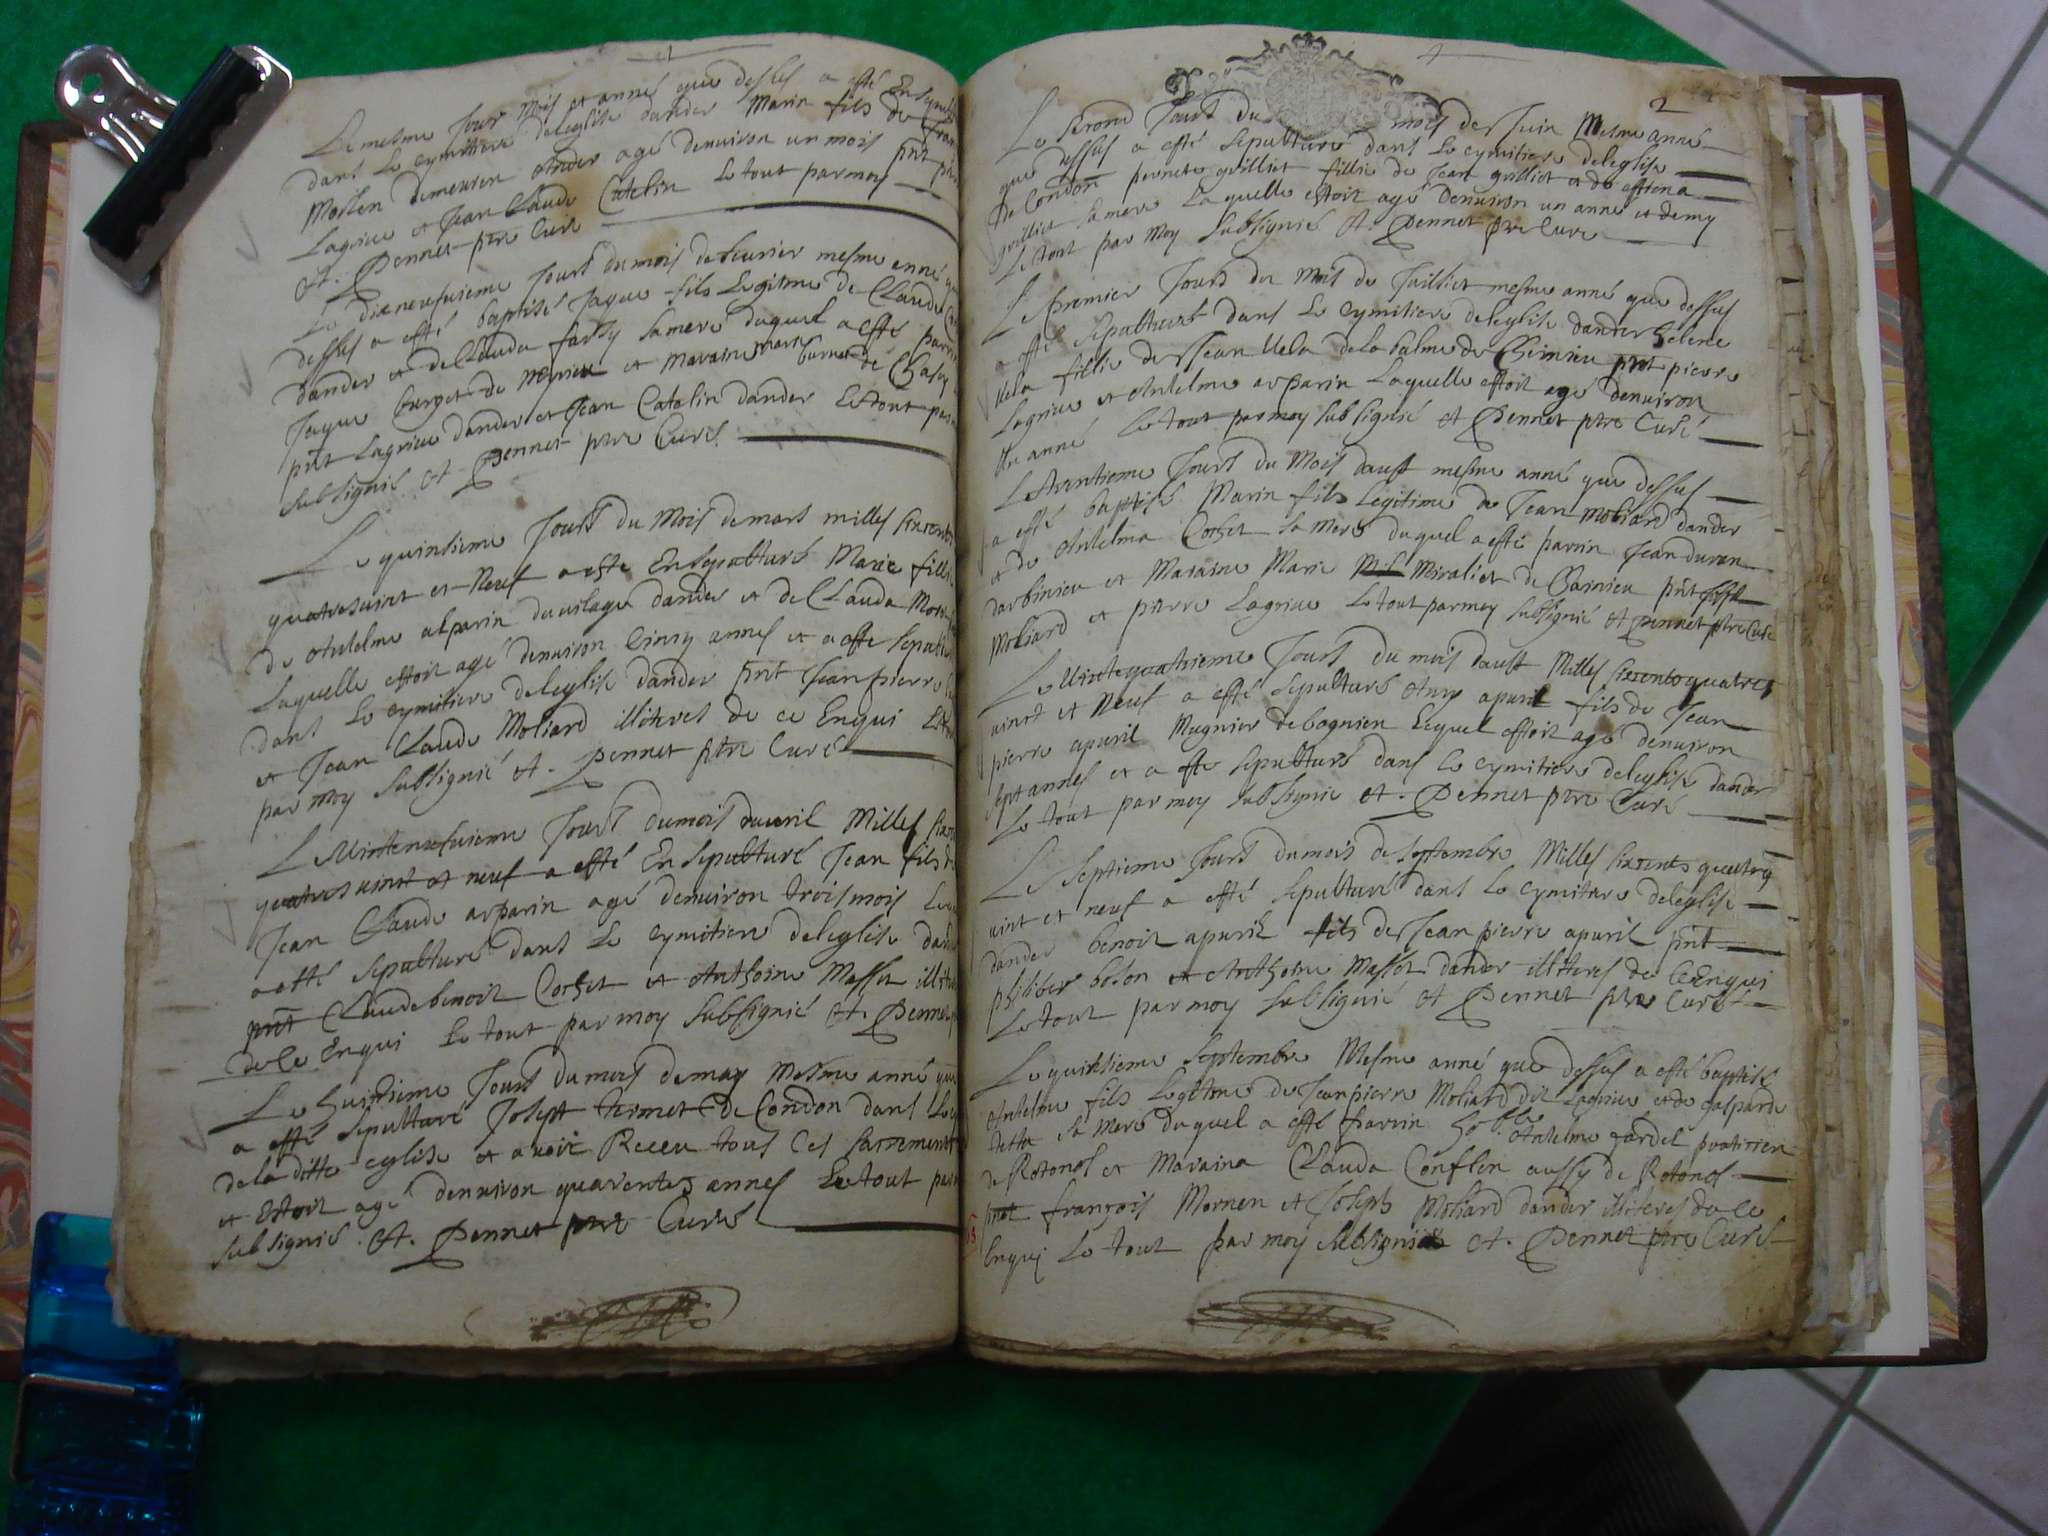 Le mesme Jour Mois et année que dessus a esté Ensepul
dans le cymitiere deleglise dander Marin fils de fran
Mollen demeuren Ander agé denuiron un mois pnt pier
Lagrive et Jean Claude Catelin Le tout par moy
A. Pennet ptre Curé
Le dixneufuieme Jourt du mois defeurier mesme anné que
dessus a esté baptisé Jaque fils Legitme de Claude
dander et de Clauda farsy sa mere duquel a esté parrin
Jaque Curget de et Maraine marie burnet de
pnt Lagrive dander et Jean Catelin dander Le tout par
subsignié A Pennet ptre Curé
Le quinsieme Jourt du Mois de mars milles sixcents
quatrevint et Neuf a esté Ensepulturé Marie fillie
de Antelme asparin du vilage dander et de Clauda Mor
Laquelle estoit agé denuiron Cinq annes et a esté sepultur
dans Le cymitiere deleglise dander pnt Jean pierre
et Jean Claude Moliard illiteres de ce Enqui Le tout
par moy subsignié A. Pennet ptre Curé
Le Vintenefuieme Jourt du mois dauril Milles sixcent
quatres vint et neuf a esté En sepulturé Jean fils de
Jean Claude asparin agé denuiron trois mois
a esté sepulturé dans Le cymitiere deleglise dand
pnt Claude benoit Cochet et Anthoine Massot illite
de ce Enqui Le tout par moy subsignié A. Pennet
Le huitieme Jourt du mois de may mesme anné que
a esté sepulturé Joseph termet de Condon dans Le cy
de la ditte eglise et avoir Receu tous Ces sacrements
et Estoit agé denuiron quarentes annes Le tout par
subsignié A. Pennet ptre Curé
2
Le second Jourt du mois de Juin Mesme anné
que dessus a esté sepulturé dans Le cymitiere deleglise
de Condon pernete grilliet fillie de Jean grilliet et de estiena
grilliet sa mere Laquelle estoit agé denuiron un anné et demy
Le tout par moy subsignié A. Pennet ptre Curé
Le premier Jourt du Mois de Jullliet mesme anné que dessus
a esté sepulturé dans Le cymitiere deleglise dander helene
Vela fillie de Jean Vela dela balme de Cheinieu pnt pierre
Lagrive et Antelme asparin Laquelle estoit agé denuiron
Un anné Le tout par moy subsignié A Pennet ptre Curé
Le trentieme Jourt du Mois daust mesme anné que dessus
a esté baptisé Marin fils Legitime de Jean Moliard dander
et de Antelma Cochet sa mere duquel a esté parrin Jean duren
darbinieu et Maraine Marie Miraliet de Charnieu pnt
Moliard et pierre Lagrive Le tout par moy subsignié A Pennet ptre Curé
Le Vintequatrieme Jourt du mois daust Milles sixcents quatres
vint et Neuf a esté sepulturé Any apuril fils de Jean
pierre apuril Mugnier de bognien Lequel estoit agé denuiron
sept annes et a esté sepulturé dans Le cymitiere deleglise dander
Le tout par moy subsignié A. Pennet ptre Curé
Le septieme Jourt du mois de septembre Milles sixcents quatres
vint et neuf a esté sepulturé dans Le cymitiere deleglise
dander benoit apuril fils de Jean pierre apuril pnt
philiber boson et Anthoine Massot dander illiteres de Ce Enqui
Le tout par moy subsignié A Pennet ptre Curé
Le quinsieme septembre Mesme anné que dessus a esté baptisé
Antelme fils Legitme de Jean pierre Moliard dit Lagrive et de gasparde
sa mere duquel a esté parrin hoble Antelme pratitien
de Rotonod et Maraina Clauda Conflen aussy de Rotonod
pnt françois Mornen et Joseph Moliard dander illiteres de ce
Enqui Le tout par moy subsignié A. Pennet ptre Curé